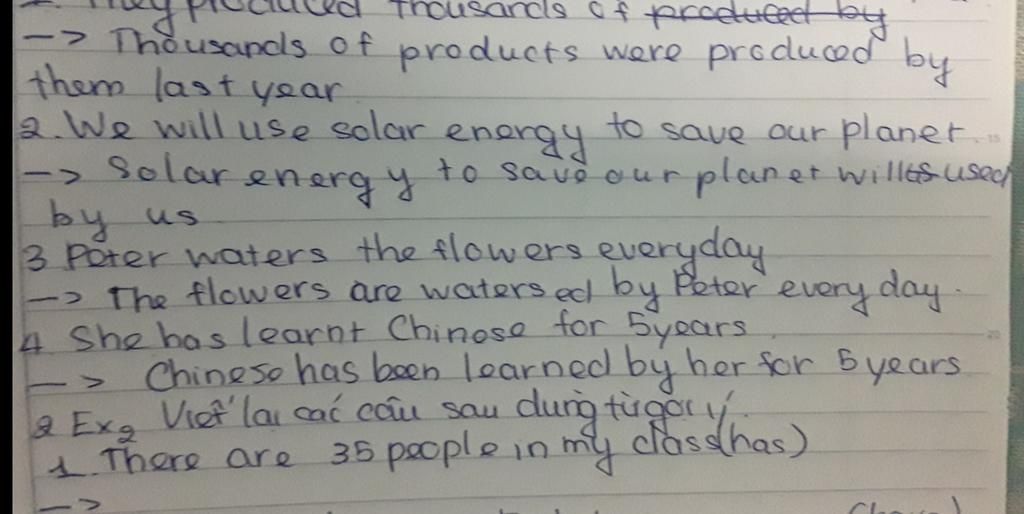 They produced thousands of produced by
-> Thousands of products were produced by
them last year
2. We will use solar energy to save our planet.
-> Solar energy to save our planet will used
by us
3 Peter waters the flowers everyday
-> The flowers are watersed by Peter every day.
4 She has learnt Chinese for 5 years
-> Chinese has been learned by her for 5 years
2 Ex2 Viết lại các câu sau dùng từ gợi ý.
1. There are 35 people in my class (has)
->